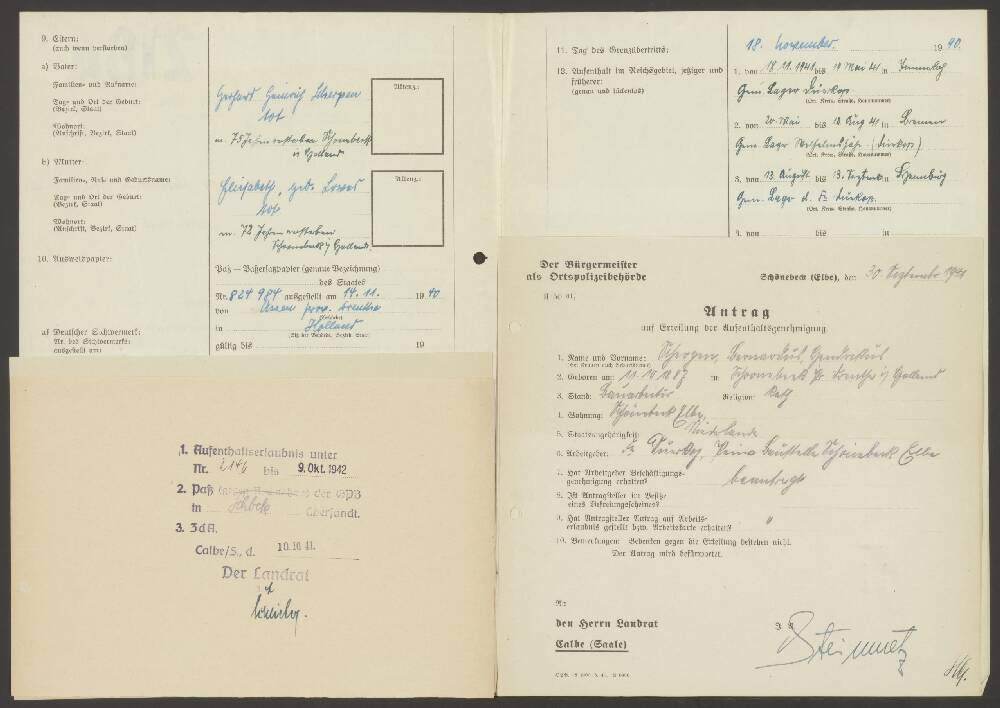 9. Eltern:
(auch wenn verstorben)
a) Vater:
Familien- und Rufname:
Gerhard Heinrich Scherpen
Tag- und Ort der Geburt:
(Bezirk, Staat)
tot
Wohnort:
(Anschrift, Bezirk, Staat)
m. 75 Jahren verstorben Schoonebeek
i Holland
Aktenz.:
b) Mutter:
Familien-, Ruf- und Geburtsname:
Elisabeth, geb.
Tag- und Ort der Geburt:
(Bezirk, Staat)
tot
Wohnort:
(Anschrift, Bezirk, Staat)
m. 72 Jahren verstorben
Schoonebeek i/ Holland.
Aktenz.:
10. Ausweispapier:
Paß — Paßersatzpapier (genaue Bezeichnung)
des Staates
Nr. 824 984 ausgestellt am 14. 11. 1940
von Assen prov. Drenthe
(Behörde)
in Holland
(Sitz der Behörde, Bezirk, Staat)
gültig bis 19
a) Deutscher Sichtvermerk:
Nr. des Sichtvermerks:
ausgestellt am:
11. Tag des Grenzübertritts:
18. November. 1940.
12. Aufenthalt im Reichsgebiet, jetziger und
früherer:
(genau und lückenlos)
1. von 18.11.1941 bis 19 Mai 41 in
Gem. Lager Dürkop
(Ort, Kreis, Straße, Hausnummer)
2. von 20. Mai bis 12 Aug 41 in Bremen
Gem. Lager (Dürkop)
(Ort, Kreis, Straße, Hausnummer)
3. von 13. August bis 13. Septemb in
Gem. Lager d. Fa Dürkop.
(Ort, Kreis, Straße, Hausnummer)
4. von bis in
1. Aufenthaltserlaubnis unter
Nr. 2146 bis 9. Okt. 1942
2. Paß der OPB
in Schbek übersandt.
3. ZdA.
Calbe/S., d. 10.10.41.
Der Landrat
Der Bürgermeister
als Ortspolizeibehörde
Schönebeck (Elbe), den 30 September 1941
Antrag
auf Erteilung der Aufenthaltsgenehmigung.
1. Name und Vorname: Scherpen, Bernardus, Hendrikus
(bei Frauen auch Geburtsname)
2. Geboren am: 11.10.1887 in Schoonebeek Pr Drenthe i/ Holland
3. Stand: Bauarbeiter Religion: Kath
4. Wohnung: Schönebeck Elbe,
5. Staatsangehörigkeit: Niederlande
6. Arbeitgeber: Fa Dürkop, Peine Baustelle Schönebeck Elbe
7. Hat Arbeitgeber Beschäftigungs-
genehmigung erhalten? beantragt
8. Ist Antragsteller im Besitze
eines Befreiungsscheines?
9. Hat Antragsteller Antrag auf Arbeits-
erlaubnis gestellt bzw. Arbeitskarte erhalten? "
10. Bemerkungen: Bedenken gegen die Erteilung bestehen nicht.
Der Antrag wird befürwortet.
An
den Herrn Landrat
Calbe (Saale)
I. A.
Steinmetz